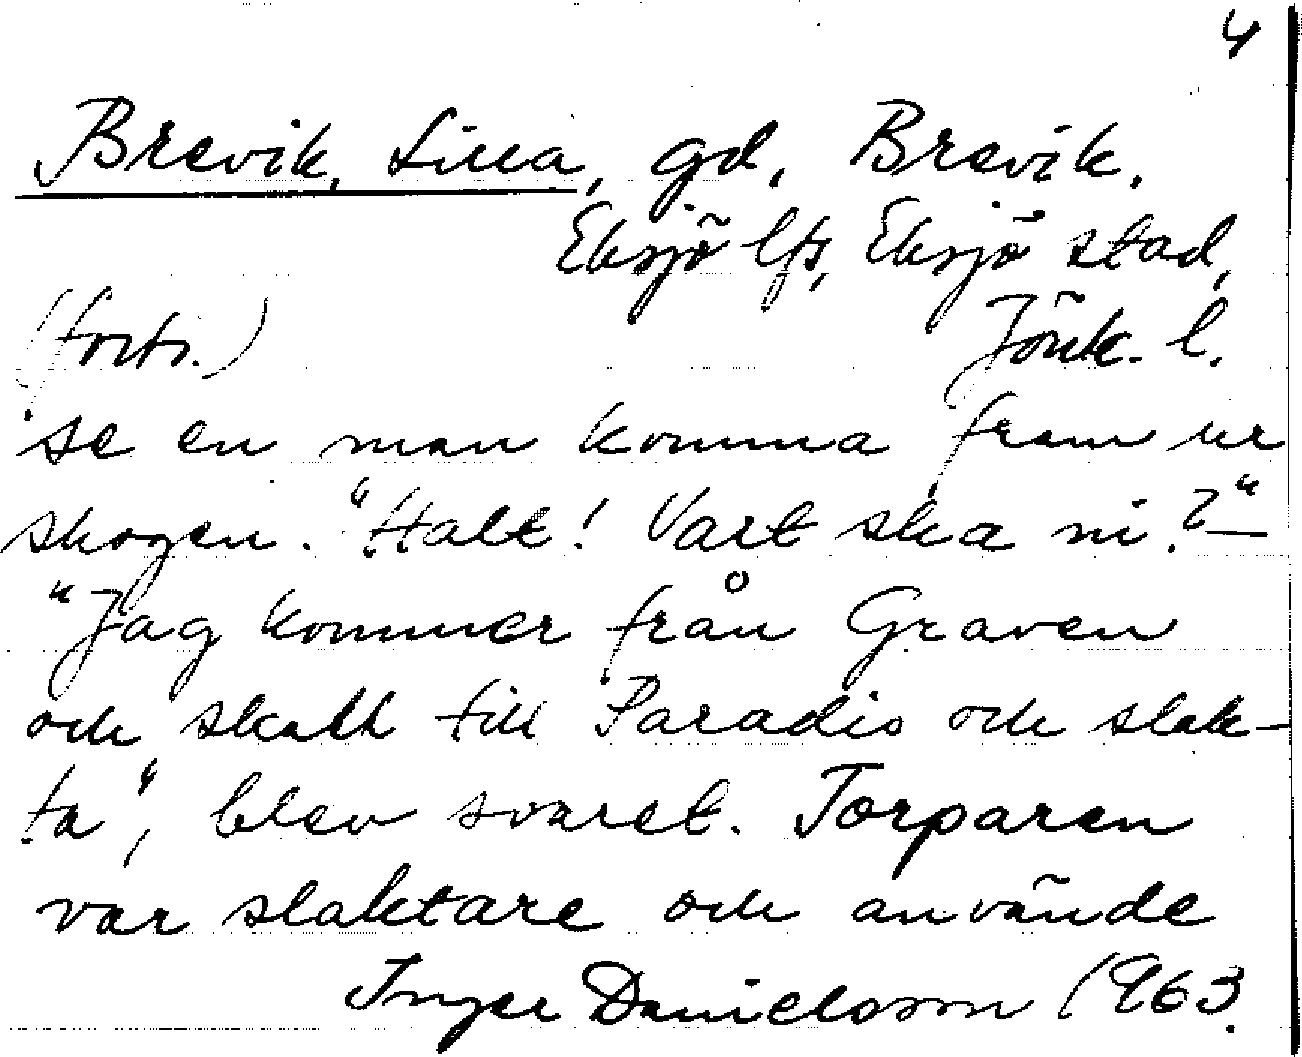 4
Brevik, Lilla, gd, Brevik,
Eksjö lfs, Eksjö stad,
(forts.) Jönk. l.
se en man komma fram ur
skogen. "Halt! Vart ska ni?" —
"Jag kommer från Graven
och skall till Paradis och slak-
ta", blev svaret. Torparen
var slaktare och använde
Inger Danielsson 1963.